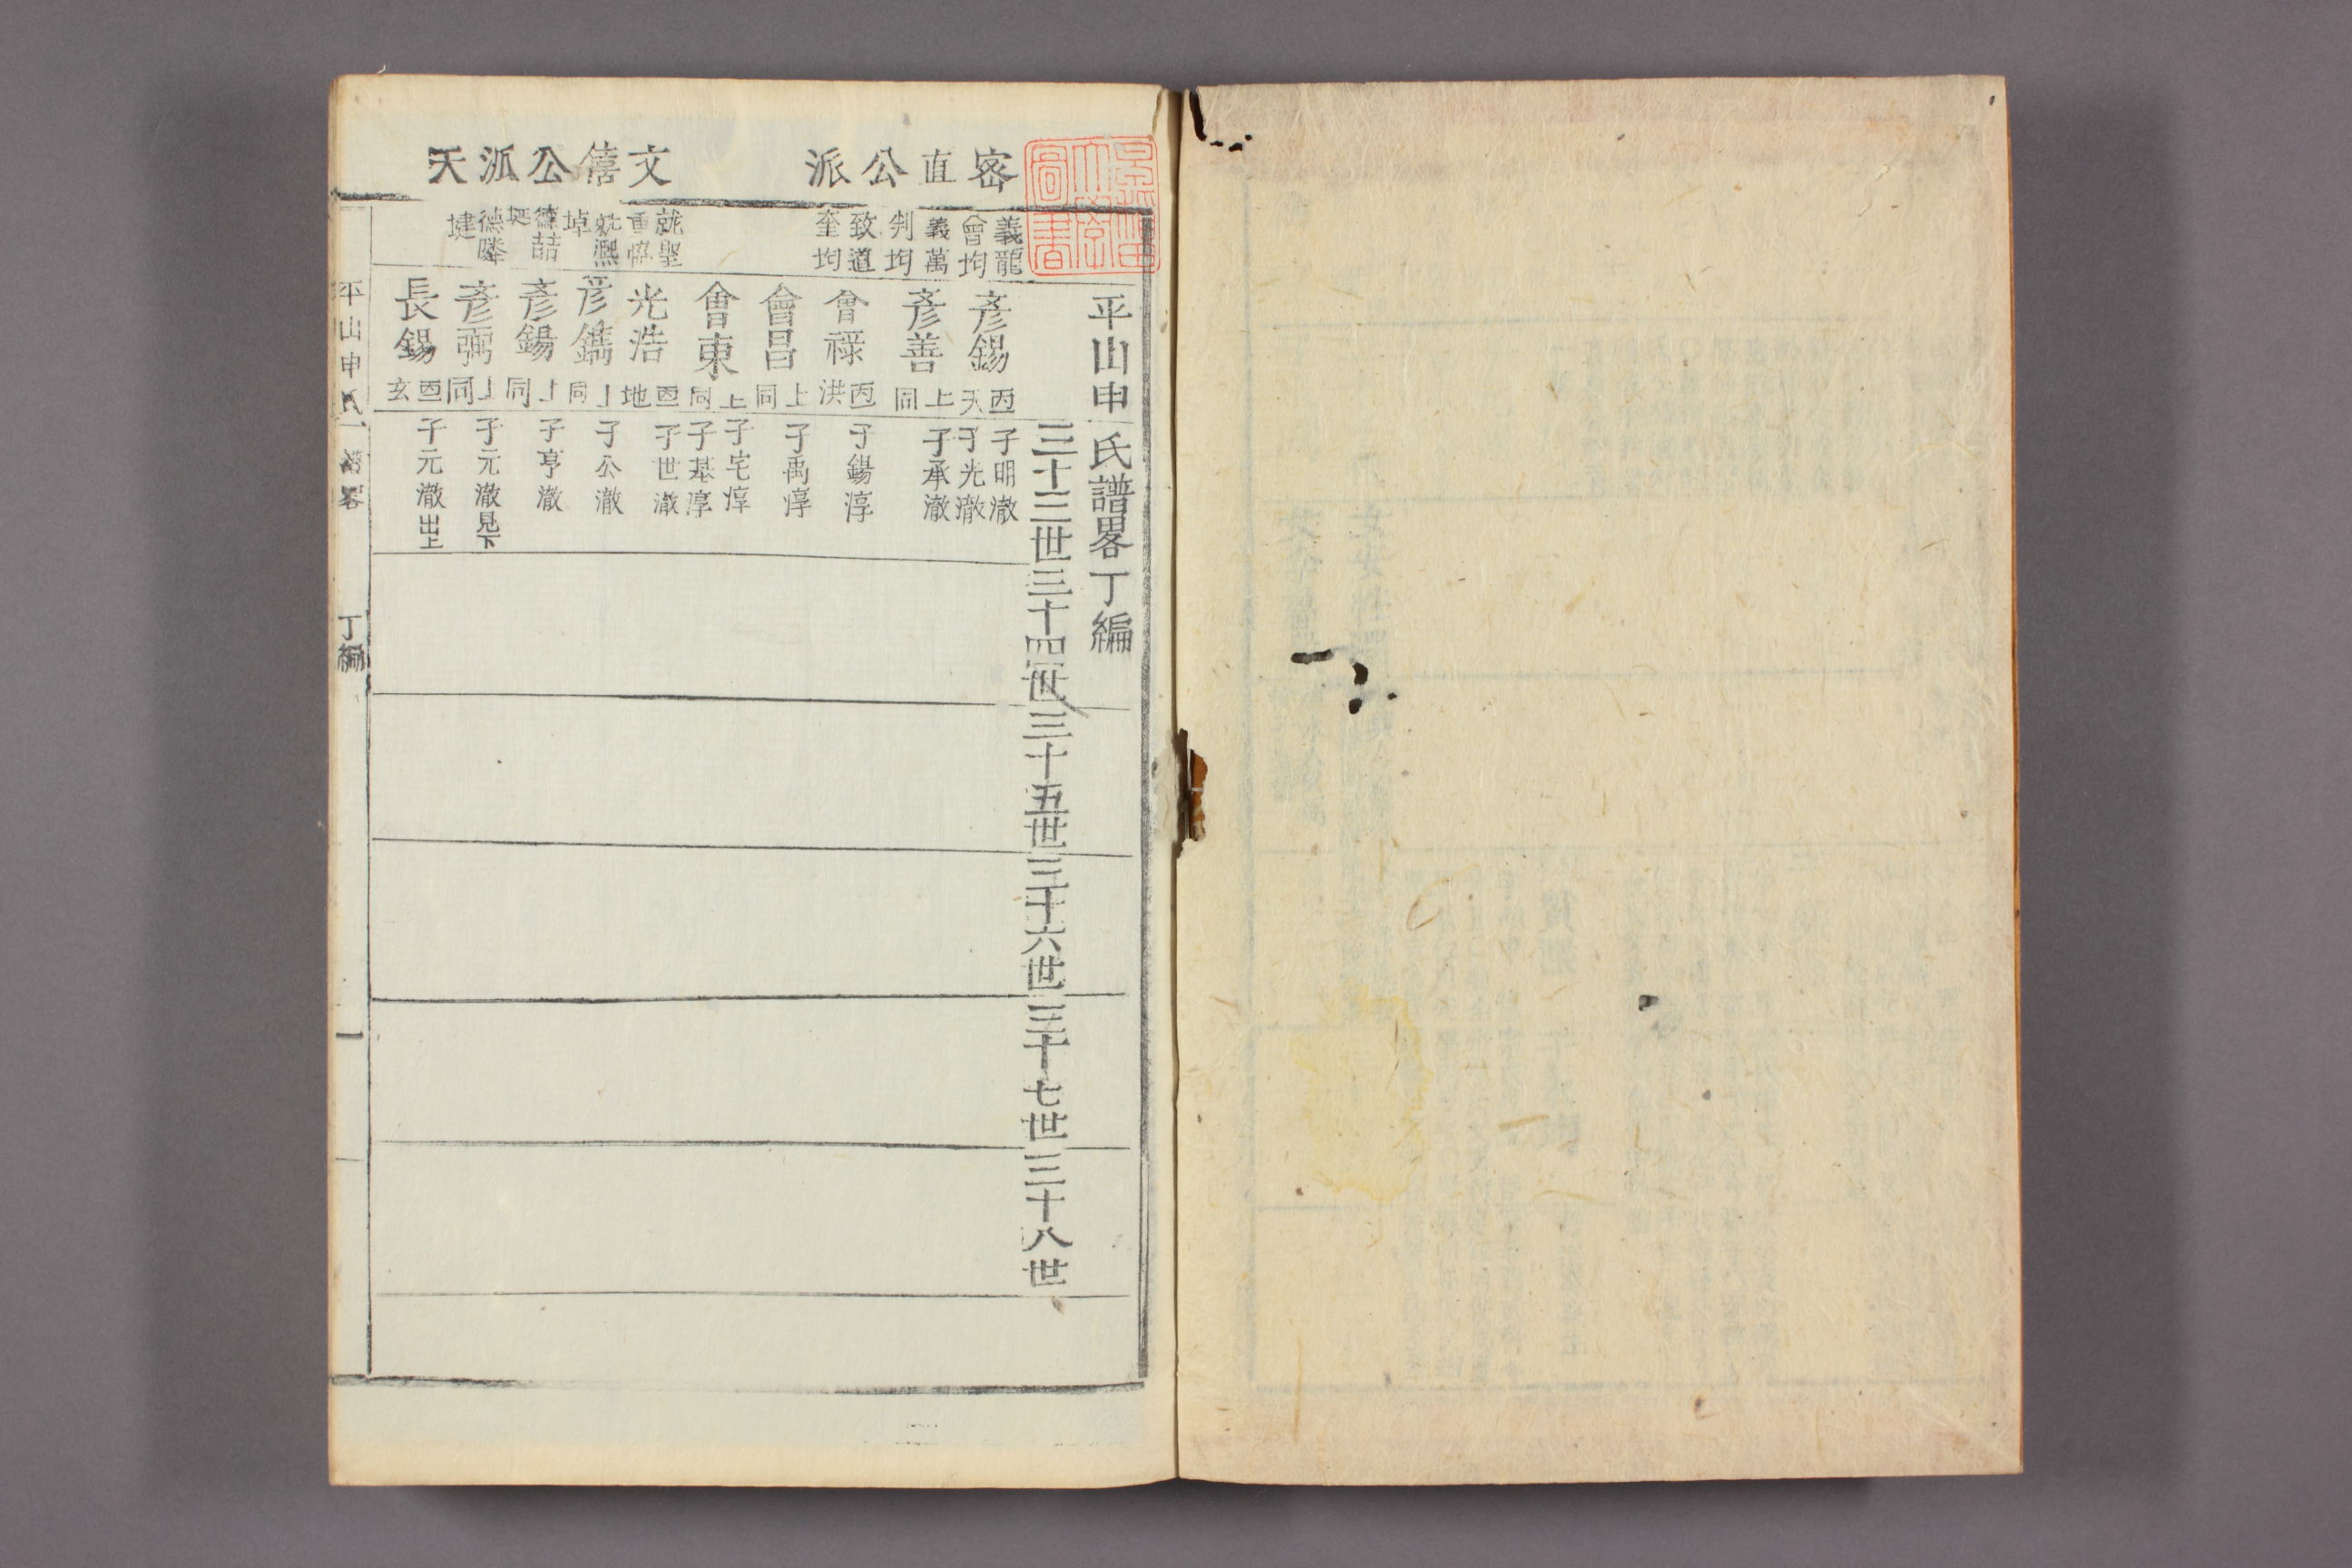 密直公派
文僖公派天
平山申氏譜畧丁編
三十三世
三十四世
三十五世
三十六世
三十七世
三十八世
義龍
會均
義萬
判均
致道
奎均
就聖
重
就熙
埻
德喆
德
建
彥錫
丙天
彥善
上同
會祿
丙洪
會昌
上同
會東
上同
光浩
丙地
彥鐫
上同
彥錫
上同
彥弼
上同
長錫
丙玄
子明澈
子光澈
子承澈
子錫淳
子禹淳
子宅淳
子基淳
子世澈
子公澈
子亨澈
子元澈見下
子元澈出上
平山申氏譜畧
丁編
一